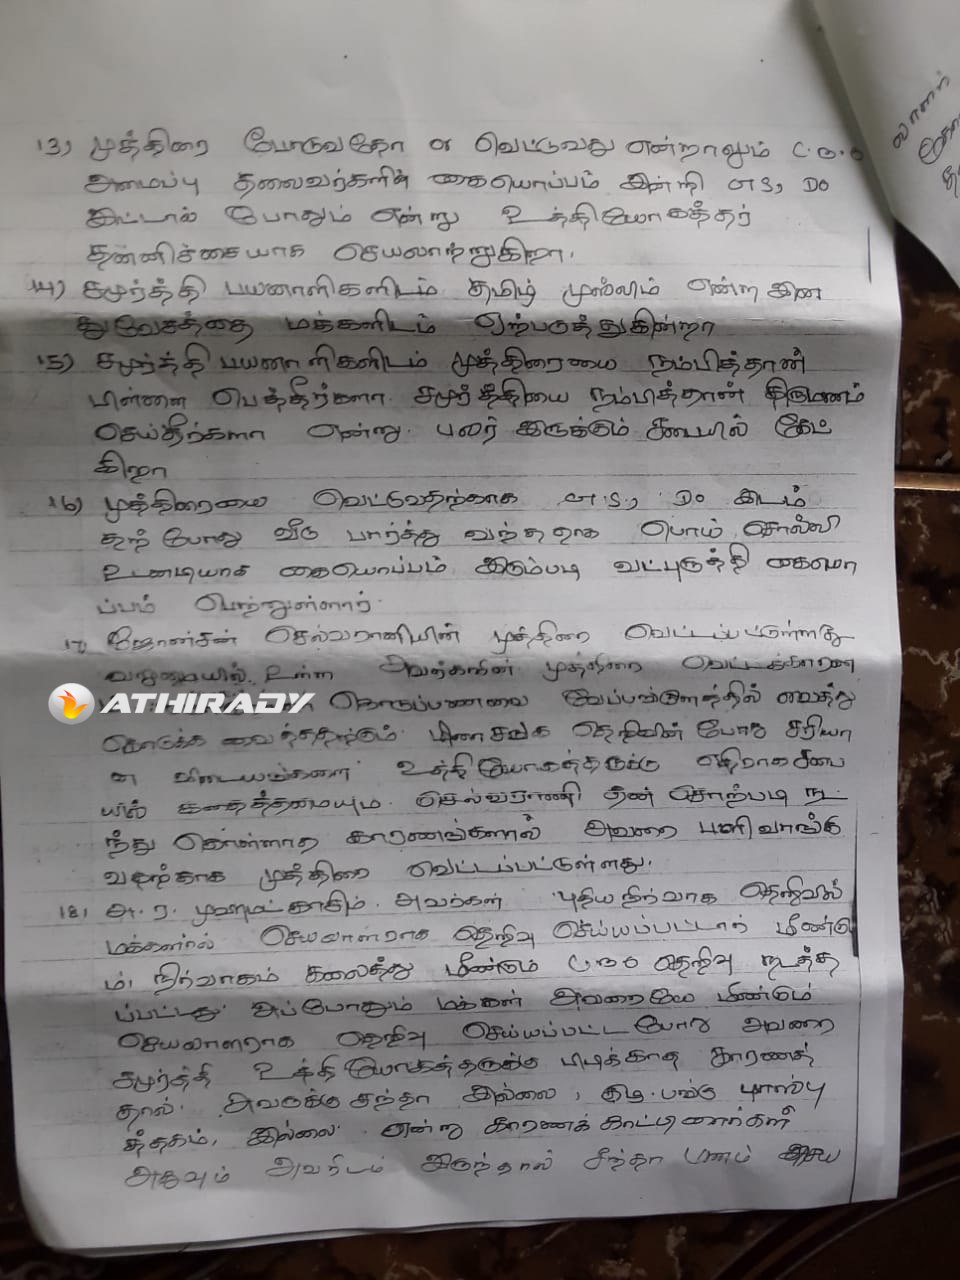 13) முத்திரை போடுவதோ or வெட்டுவது என்றாலும் C.B.O
அமைப்பு தலைவர்களின் கையொப்பம் இன்றி G.S, DO
இட்டால் போதும் என்று உத்தியோகத்தர்
தன்னிச்சையாக செயலாற்றுகிறா.
14) சமுர்த்தி பயனாளிகளிடம் தமிழ் முஸ்லிம் என்ற இன
துவேசத்தை மக்களிடம் ஏற்படுத்துகின்றா
15) சமுர்த்தி பயனாளிகளிடம் முத்திரையை நம்பித்தான்
பிள்ளை பெத்தீர்களா. சமுர்த்தியை நம்பித்தான் திருமணம்
செய்தீர்களா என்று. பலர் இருக்கும் சபையில் கேட்
கிறா
16) முத்திரையை வெட்டுவதற்காக G.S, DO இடம்
தற்போது வீடு பார்த்து வந்ததாக பொய் சொல்லி
உடனடியாக கையொப்பம் இடும்படி வட்புறுத்தி கையொ
ப்பம் பெற்றுள்ளார்.
17 ஜோன்சன் செல்வராணியின் முத்திரை வெட்டப்பட்டுள்ளது
வறுமையில் உள்ள அவர்களின் முத்திரை வெட்டக்காரண
கொடுப்பணவை வேப்பங்குளத்தில் வைத்து
கொடுக்க வைத்ததற்கும். தெரிவின் போது சரியா
ன விடையங்களை உத்தியோகத்தருக்கு எதிராக சபை
யில் கதைத்தமையும். செல்வராணி தன் சொற்படி நட
ந்து கொள்ளாத காரணங்களால் அவரை பழிவாங்கு
வதற்காக முத்திரை வெட்டப்பட்டுள்ளது.
18) அ. ர. முஹமட் காசிம். அவர்கள் புதிய நிர்வாக தெரிவில்
மக்களால் செயலாளராக தெரிவு செய்யப்பட்டார் மீண்டு
ம் நிர்வாகம் கலைத்து மீண்டும் C.B.O தெரிவு நடத்த
ப்பட்டது அப்போதும் மக்கள் அவரையே மீண்டும்
செயலாளராக தெரிவு செய்யப்பட்ட போது அவரை
சமுர்த்தி உத்தியோகத்தருக்கு பிடிக்காத காரணத்
தால். அவருக்கு சந்தா இல்லை, குடி பங்கு பாஸ்பு
த்தகம், இல்லை. என்று காரணக் காட்டினார்கள்
அதுவும் அவரிடம் இருந்தால் சந்தா பணம்
ATHIRADY